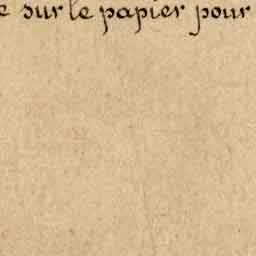 e sur le papier pour